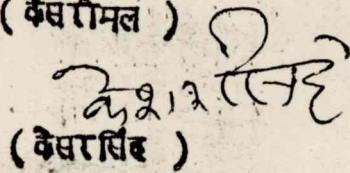 ( केसरीमल )
केशर सिंह
( केसरसिंह )